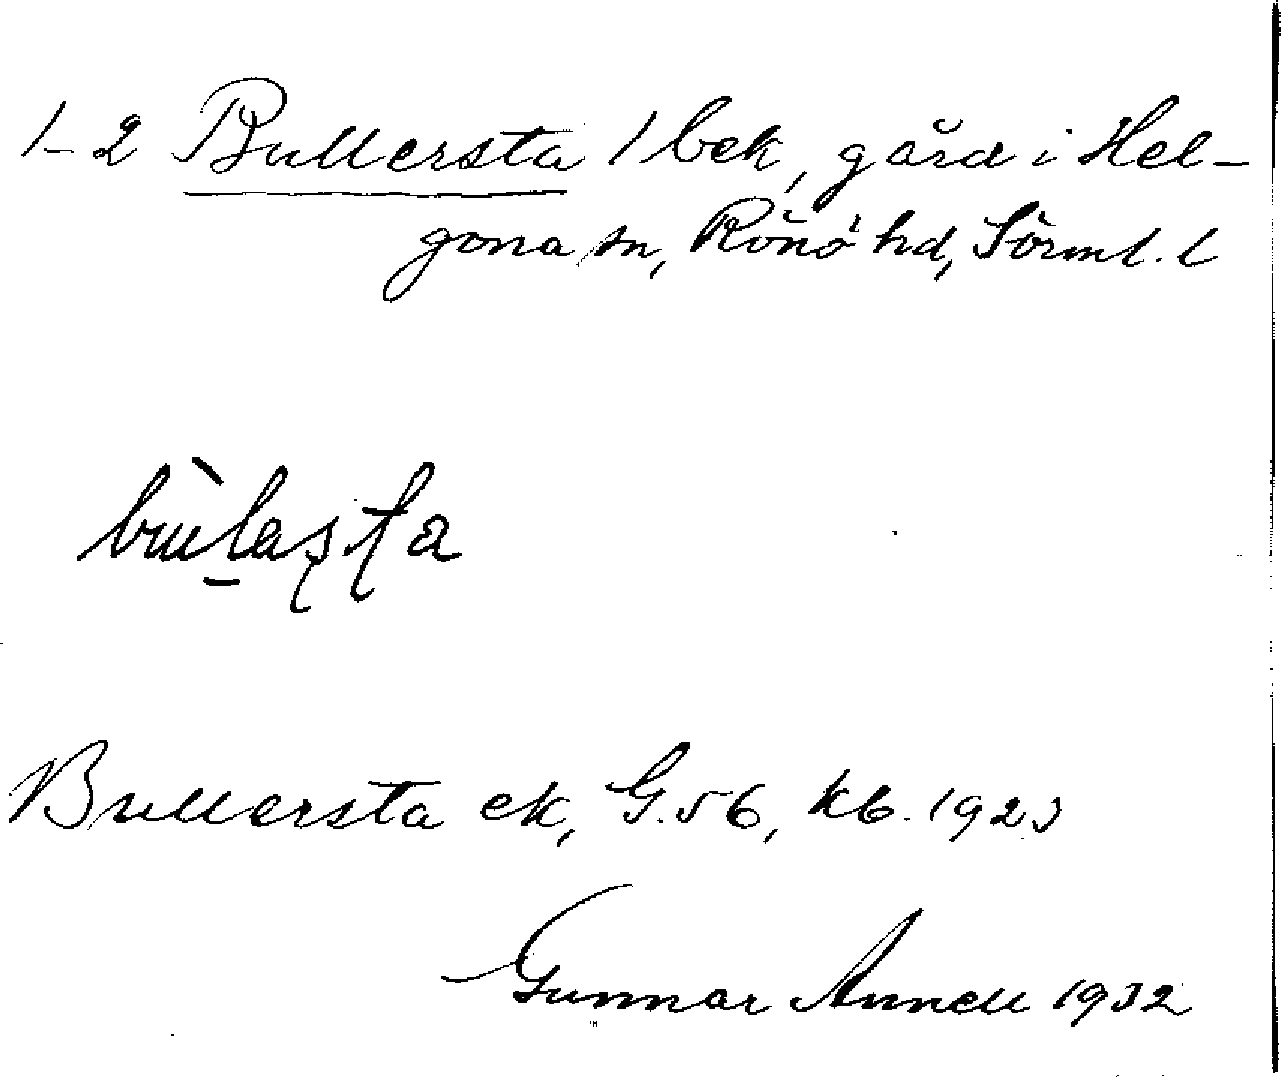 1-2 Bullersta / bek, gård i Hel-
gona sn, Rönö hd, Sörml. l
Bullersta ek, G.56, kb. 1923
Gunnar Annell 1932